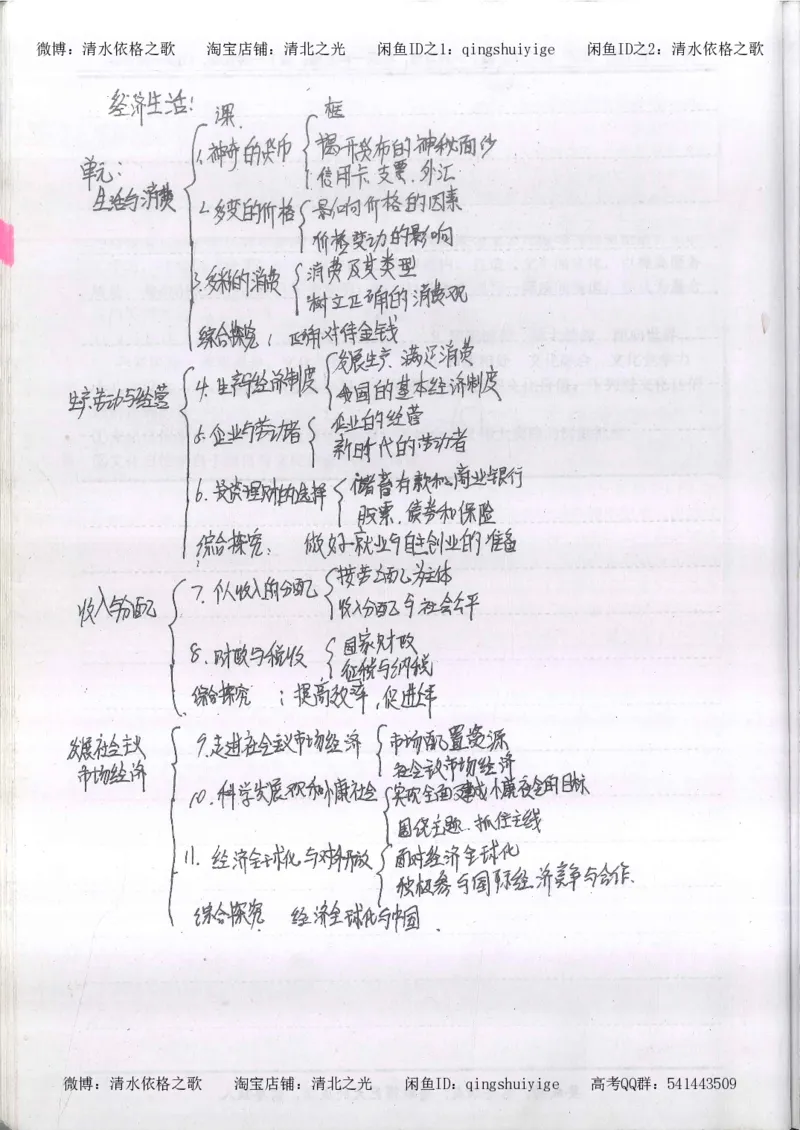 微博：清水依格之歌 淘宝店铺：清北之光 闲鱼ID之1：qingshuiyige 闲鱼ID之2：清水依格之歌
经济生活：
课 框
单元：
生活与消费
1.神奇的货币
揭开货币的神秘面纱
信用卡、支票、外汇
2.多变的价格
影响价格的因素
价格变动的影响
3.多彩的消费
消费及其类型
树立正确的消费观
综合探究：正确对待金钱
生产劳动与经营
4.生产与经济制度
发展生产 满足消费
我国的基本经济制度
5.企业与劳动者
企业的经营
新时代的劳动者
6.投资理财的选择
储蓄存款和商业银行
股票、债券和保险
综合探究：做好就业与自主创业的准备
收入与分配
7.个人收入的分配
按劳分配为主体
收入分配与社会公平
8.财政与税收
国家财政
征税与纳税
综合探究：提高效率，促进公平
发展社会主义
市场经济
9.走进社会主义市场经济
市场配置资源
社会主义市场经济
10.科学发展观和小康社会
实现全面建成小康社会的目标
围绕主题、抓住主线
11.经济全球化与对外开放
面对经济全球化
积极参与国际经济竞争与合作.
综合探究 经济全球化与中国.
微博：清水依格之歌 淘宝店铺：清北之光 闲鱼ID：qingshuiyige 高考QQ群：541443509